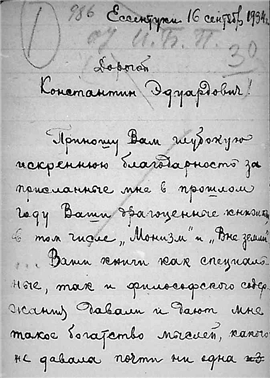 1
986
Ессентуки 16 сентября, 1934 г.
30
Дорогой
Константин Эдуардович!
Приношу Вам глубокую
искреннюю благодарность за
присланные мне в прошлом
году Ваши драгоценные книжки
в том числе „Монизм" и „Вне земли"
... Ваши книги как специаль-
ные, так и философского содер-
жания давали и дают мне
такое богатство мыслей, какого
не давала почти ни одна